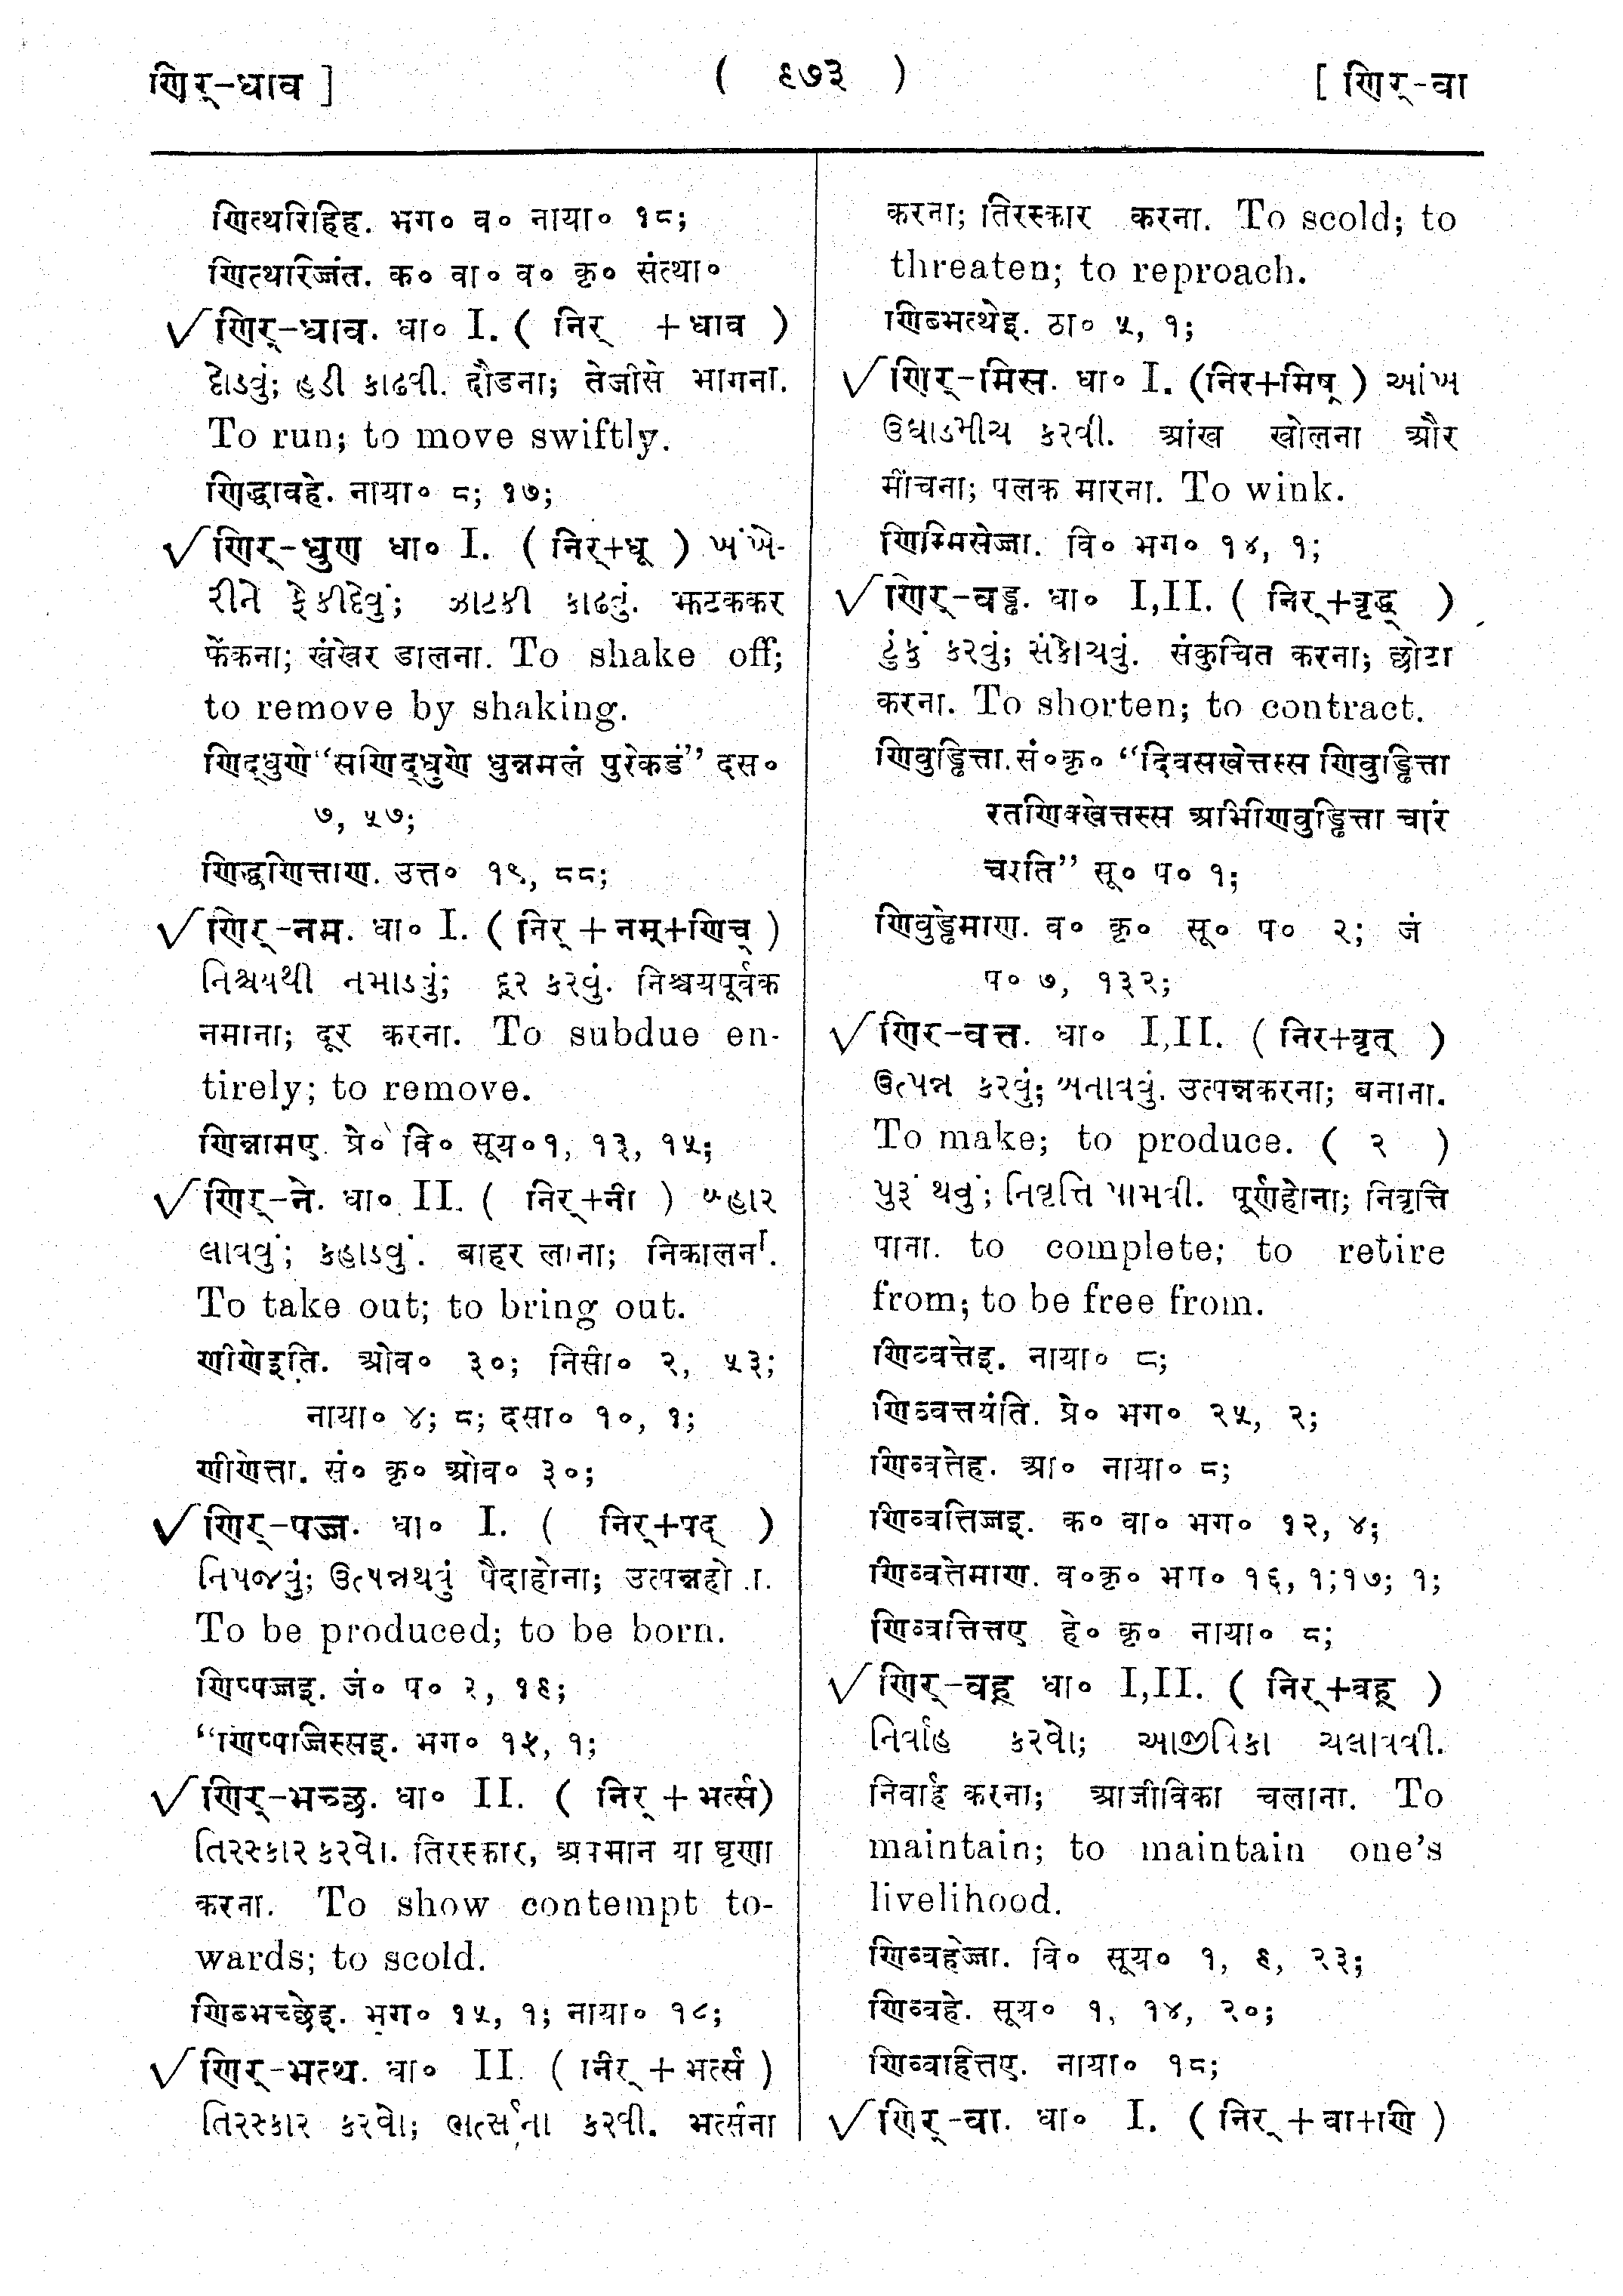 णिर्-धाव ]
( ९७३ )
[ णिर्-वा
णित्थरिहिह. भग० व० नाया० १८;
णित्थारिज्जंत. क० वा० व० कृ० संत्था०
√ णिर्-धाव. धा० I. ( निर् +धाव )
દોડવું; હડી કાઢવી. दौडना; तेजीसे भागना.
To run; to move swiftly.
णिद्धावहे. नाया० ८; १७;
√ णिर्-धुण धा० I. ( निर्+धू ) ખંખે-
રીને ફેંકીદેવું; ઝાટકી કાઢવું. झटककर
फेंकना; खंखेर डालना. To shake off;
to remove by shaking.
णिद्धुणे “सणिद्धुणे धुन्नमलं पुरेकडं” दस०
७, ५७;
णिद्धुणित्ताण. उत्त० १९, ८८;
√ णिर्-नम. धा० I. ( निर् + नम्+णिच् )
નિશ્ચયથી નમાડવું; દૂર કરવું. निश्चयपूर्वक
नमाना; दूर करना. To subdue en-
tirely; to remove.
णिन्नामए. प्रे० वि० सूय०१, १३, १५;
√ णिर्-ने. धा० II. ( निर्+नी ) બહાર
લાવવું; કહાડવું. बाहर लाना; निकालना.
To take out; to bring out.
णीणेइति. ओव० ३०; निसी० २, ५३;
नाया० ४; ८; दसा० १०, १;
णीणेत्ता. सं० कृ० ओव० ३०;
√ णिर्-पज्ज. धा० I. ( निर्+पद् )
નિપજવું; ઉત્પન્નથવું पैदाहोना; उत्पन्नहो ा.
To be produced; to be born.
णिप्पज्जइ. जं० प० २, १९;
“णिप्पज्जिस्सइ. भग० १५, १;
√ णिर्-भच्छ. धा० II. ( निर् + भर्त्स)
તિરસ્કાર કરવો. तिरस्कार, अपमान या घृणा
करना. To show contempt to-
wards; to scold.
णिब्भच्छेइ. भग० १५, १; नाया० १८;
√ णिर्-भत्थ. धा० II. ( निर् + भर्त्स )
તિરસ્કાર કરવો; ભર્ત્સના કરવી. भर्त्सना
करना; तिरस्कार करना. To scold; to
threaten; to reproach.
णिब्भत्थेइ. ठा० ५, १;
√ णिर्-मिस. धा० I. (निर+मिष् ) આંખ
ઉઘાડમીચ કરવી. आंख खोलना और
मींचना; पलक मारना. To wink.
णिम्मिसेज्जा. वि० भग० १४, १;
√ णिर्-वड्ढ. धा० I,II. ( निर्+वृद्ध् )
ટુંકું કરવું; સંકોચવું. संकुचित करना; छोटा
करना. To shorten; to contract.
णिवुड्ढित्ता. सं०कृ० “दिवसखेत्तस्स णिवुड्ढित्ता
रतणिक्खेत्तस्स अभिणिवुड्ढित्ता चारं
चरति” सू० प० १;
णिवुड्ढेमाण. व० कृ० सू० प० २; जं
प० ७, १३२;
√ णिर-वत्त. धा० I,II. ( निर+वृत् )
ઉત્પન્ન કરવું; બનાવવું. उत्पन्नकरना; बनाना.
To make; to produce. ( २ )
પુરૂં થવું; નિવૃત્તિ પામવી. पूर्णहोना; निवृत्ति
पाना. to complete; to retire
from; to be free from.
णिव्वत्तेइ. नाया० ८;
णिव्वत्तयंति. प्रे० भग० २५, २;
णिव्वत्तेह. आ० नाया० ८;
णिव्वत्तिज्जइ. क० वा० भग० १२, ४;
णिव्वत्तेमाण. व०कृ० भग० १६, १;१७; १;
णिव्वत्तित्तए हे० कृ० नाया० ८;
√ णिर्-वह् धा० I,II. ( निर्+वह् )
નિર્વાહ કરવો; આજીવિકા ચલાવવી.
निवार्ह करना; आजीविका चलाना. To
maintain; to maintain one's
livelihood.
णिव्वहेज्जा. वि० सूय० १, ९, २३;
णिव्वहे. सूय० १, १४, २०;
णिव्वाहित्तए. नाया० १८;
√ णिर्-वा. धा० I. ( निर् + वा+णि )